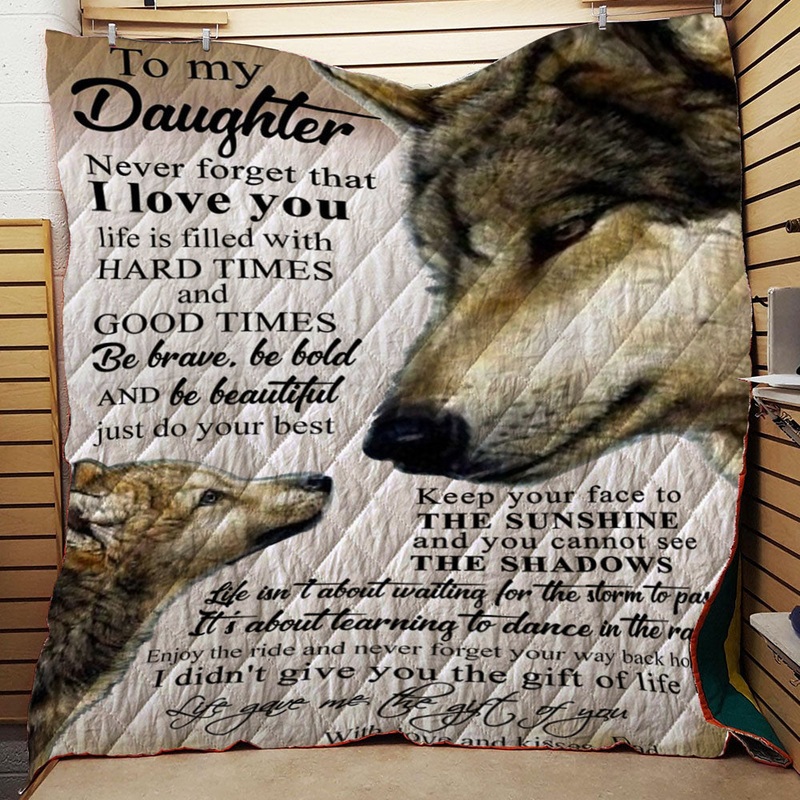 To my
Daughter
Never forget that
I love you
life is filled with
HARD TIMES
and
GOOD TIMES
Be brave. be bold
AND be beautiful
just do your best
Keep your face to
THE SUNSHINE
and you cannot see
THE SHADOWS
Life isn't about waiting for the storm to pas
It's about learning to dance in the ra
Enjoy the ride and never forget your way back ho
I didn't give you the gift of life
Life gave me the gift of you
With love and kisses, Dad